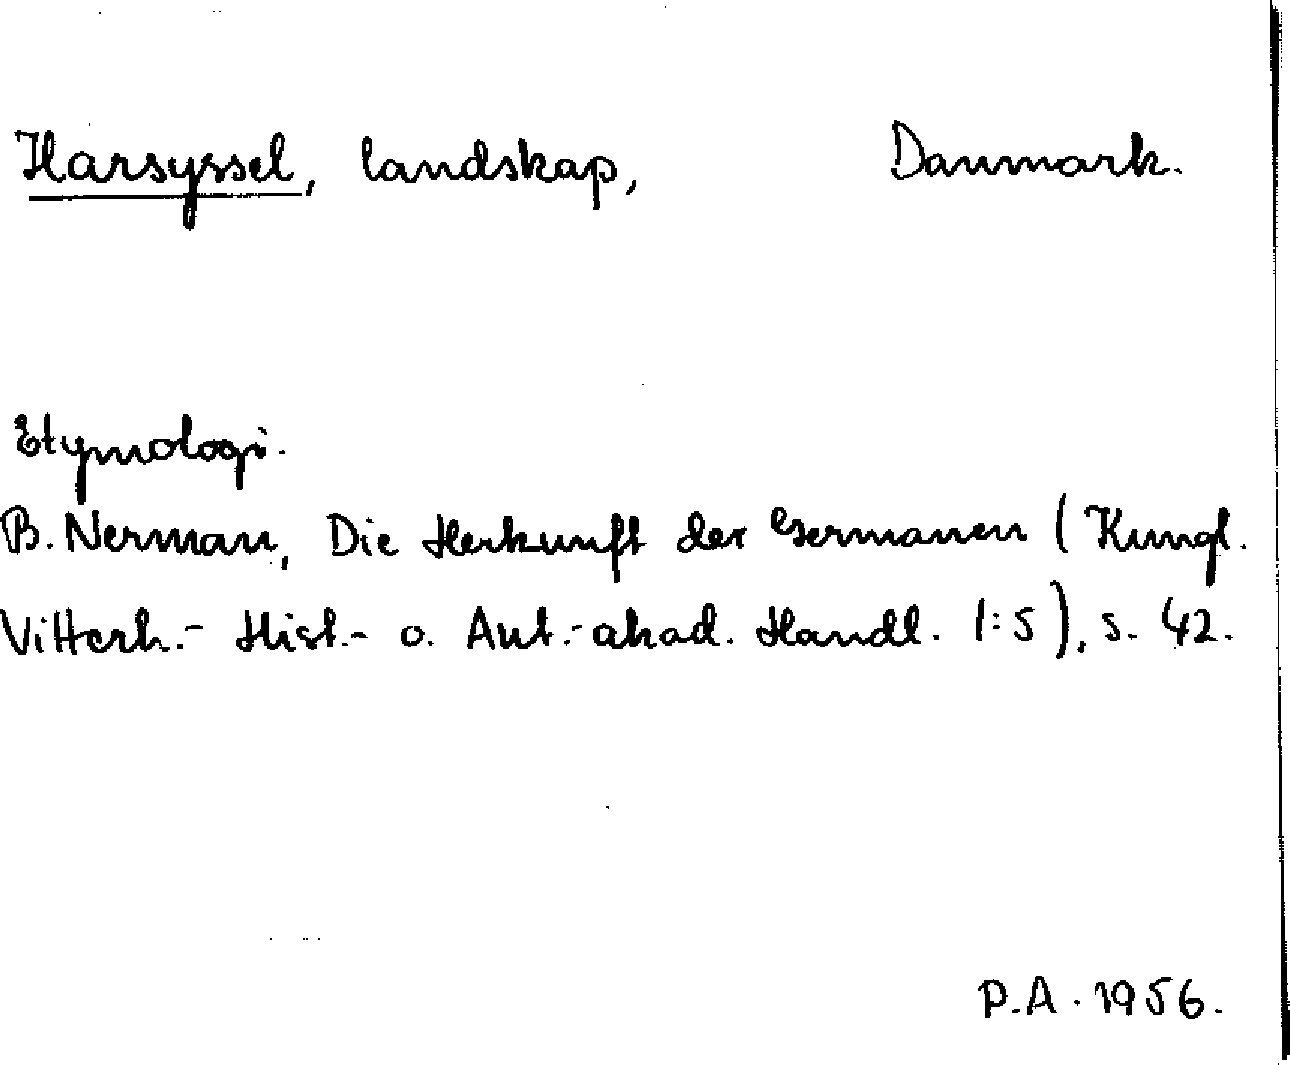 Harsyssel, landskap, Danmark.
Etymologi.
B. Nerman, Die Herkunft der Germanen (Kungl.
Vitterh.- Hist.- o. Ant.-akad. Handl. 1:5), s. 42.
P.A. 1956.